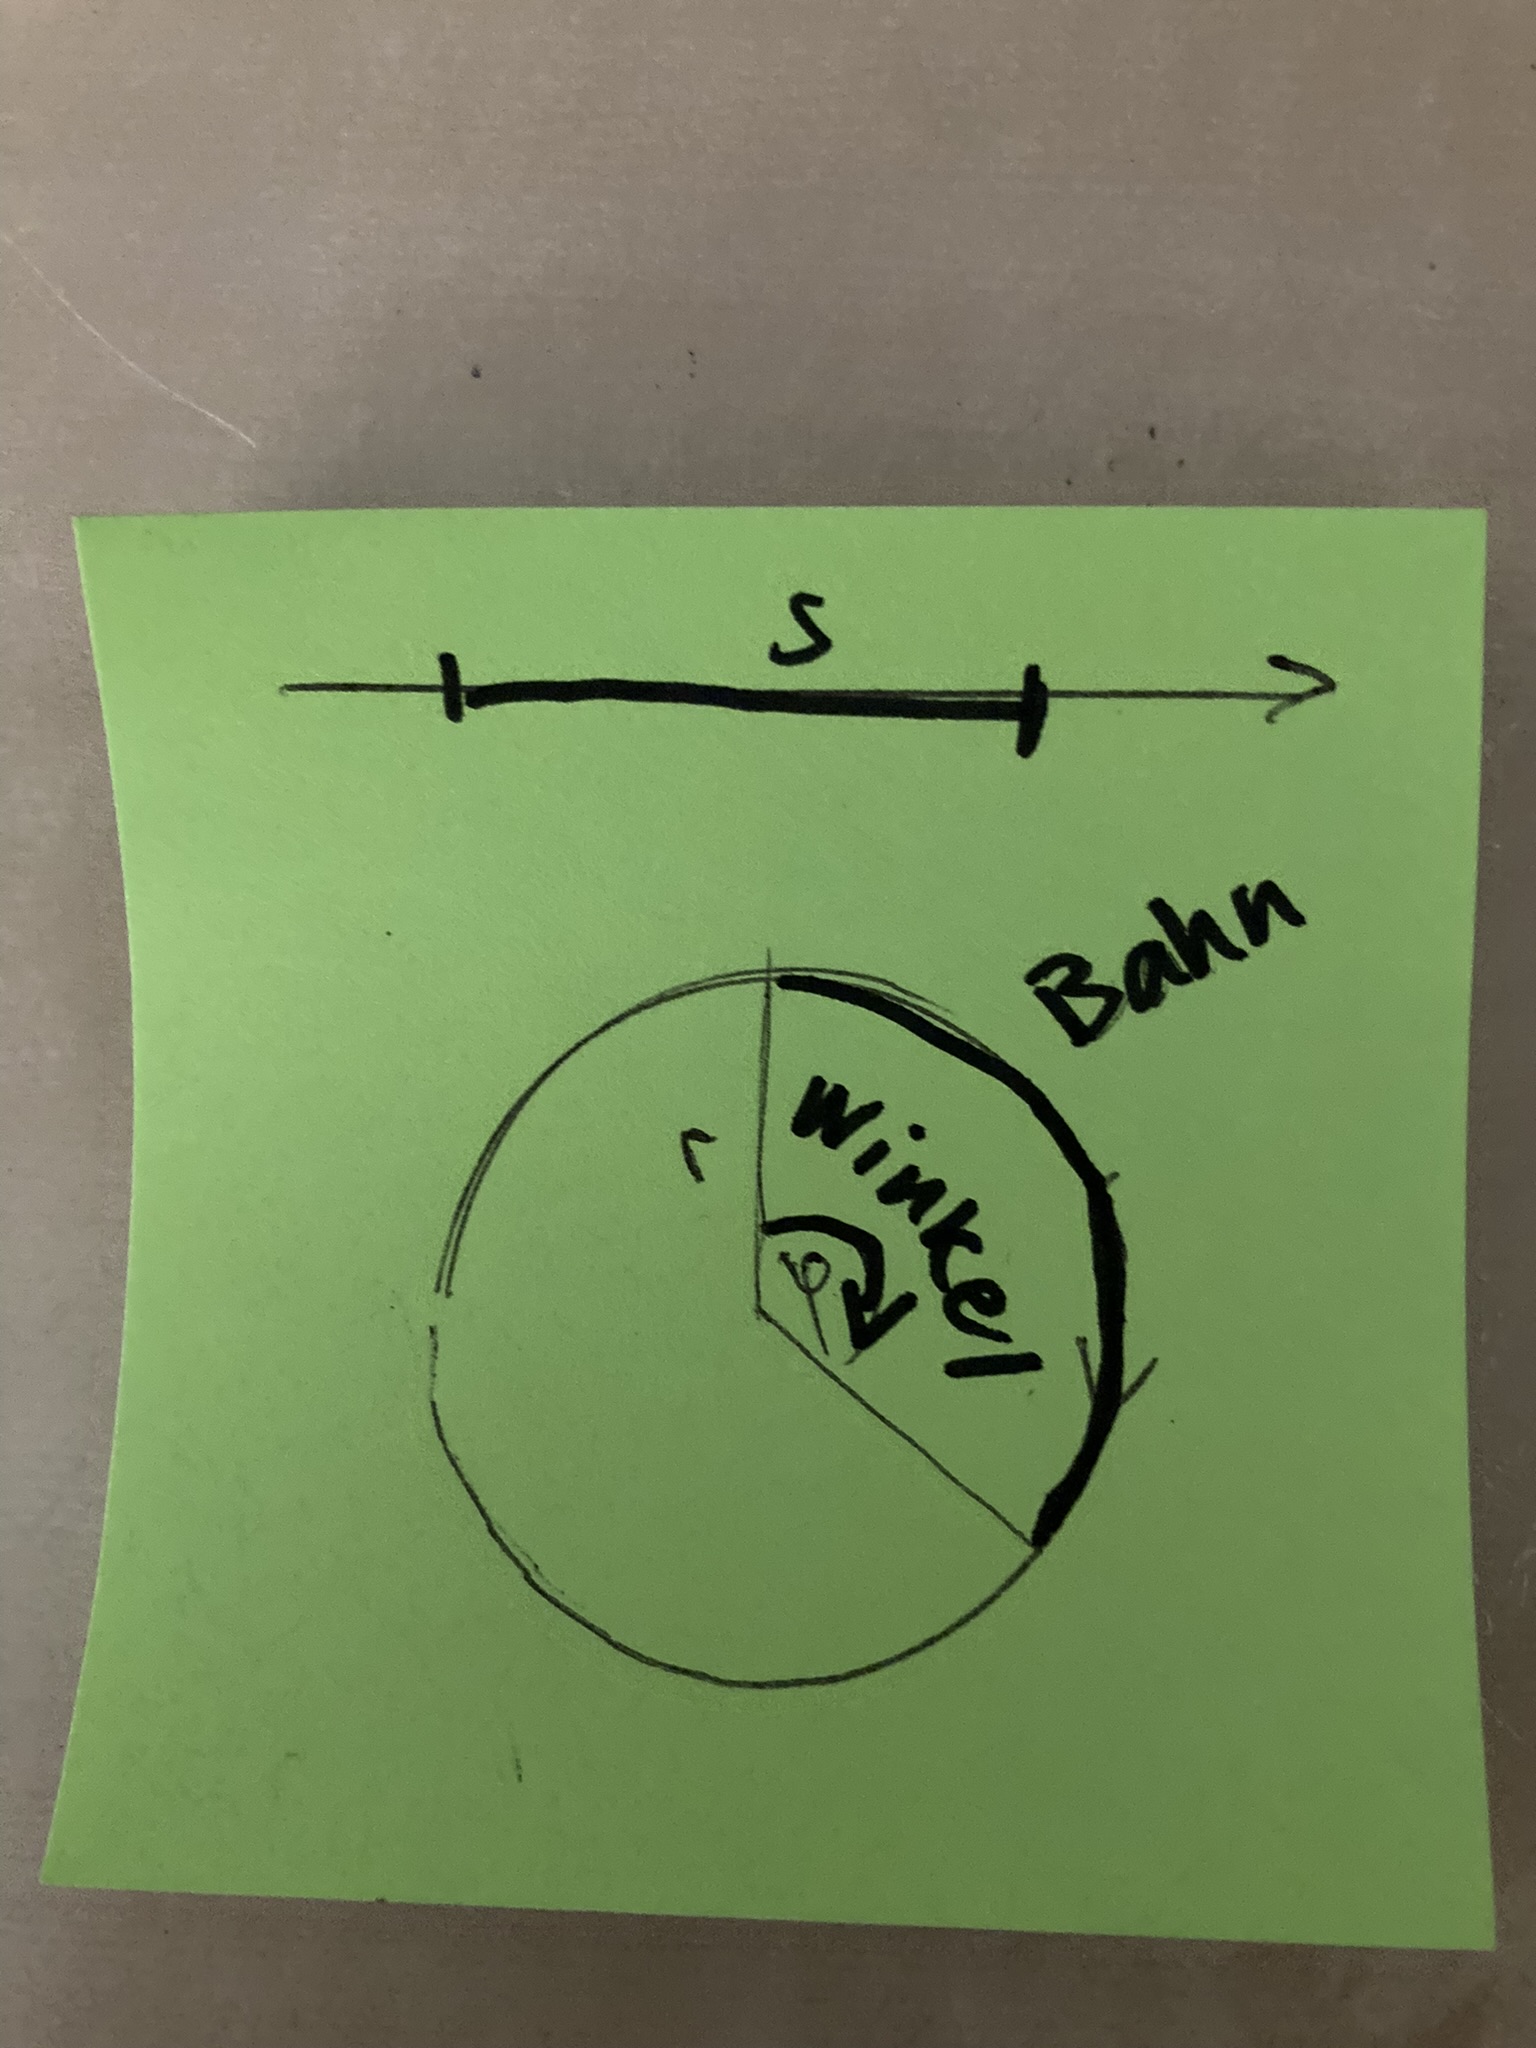 s
Bahn
r
Winkel
φ